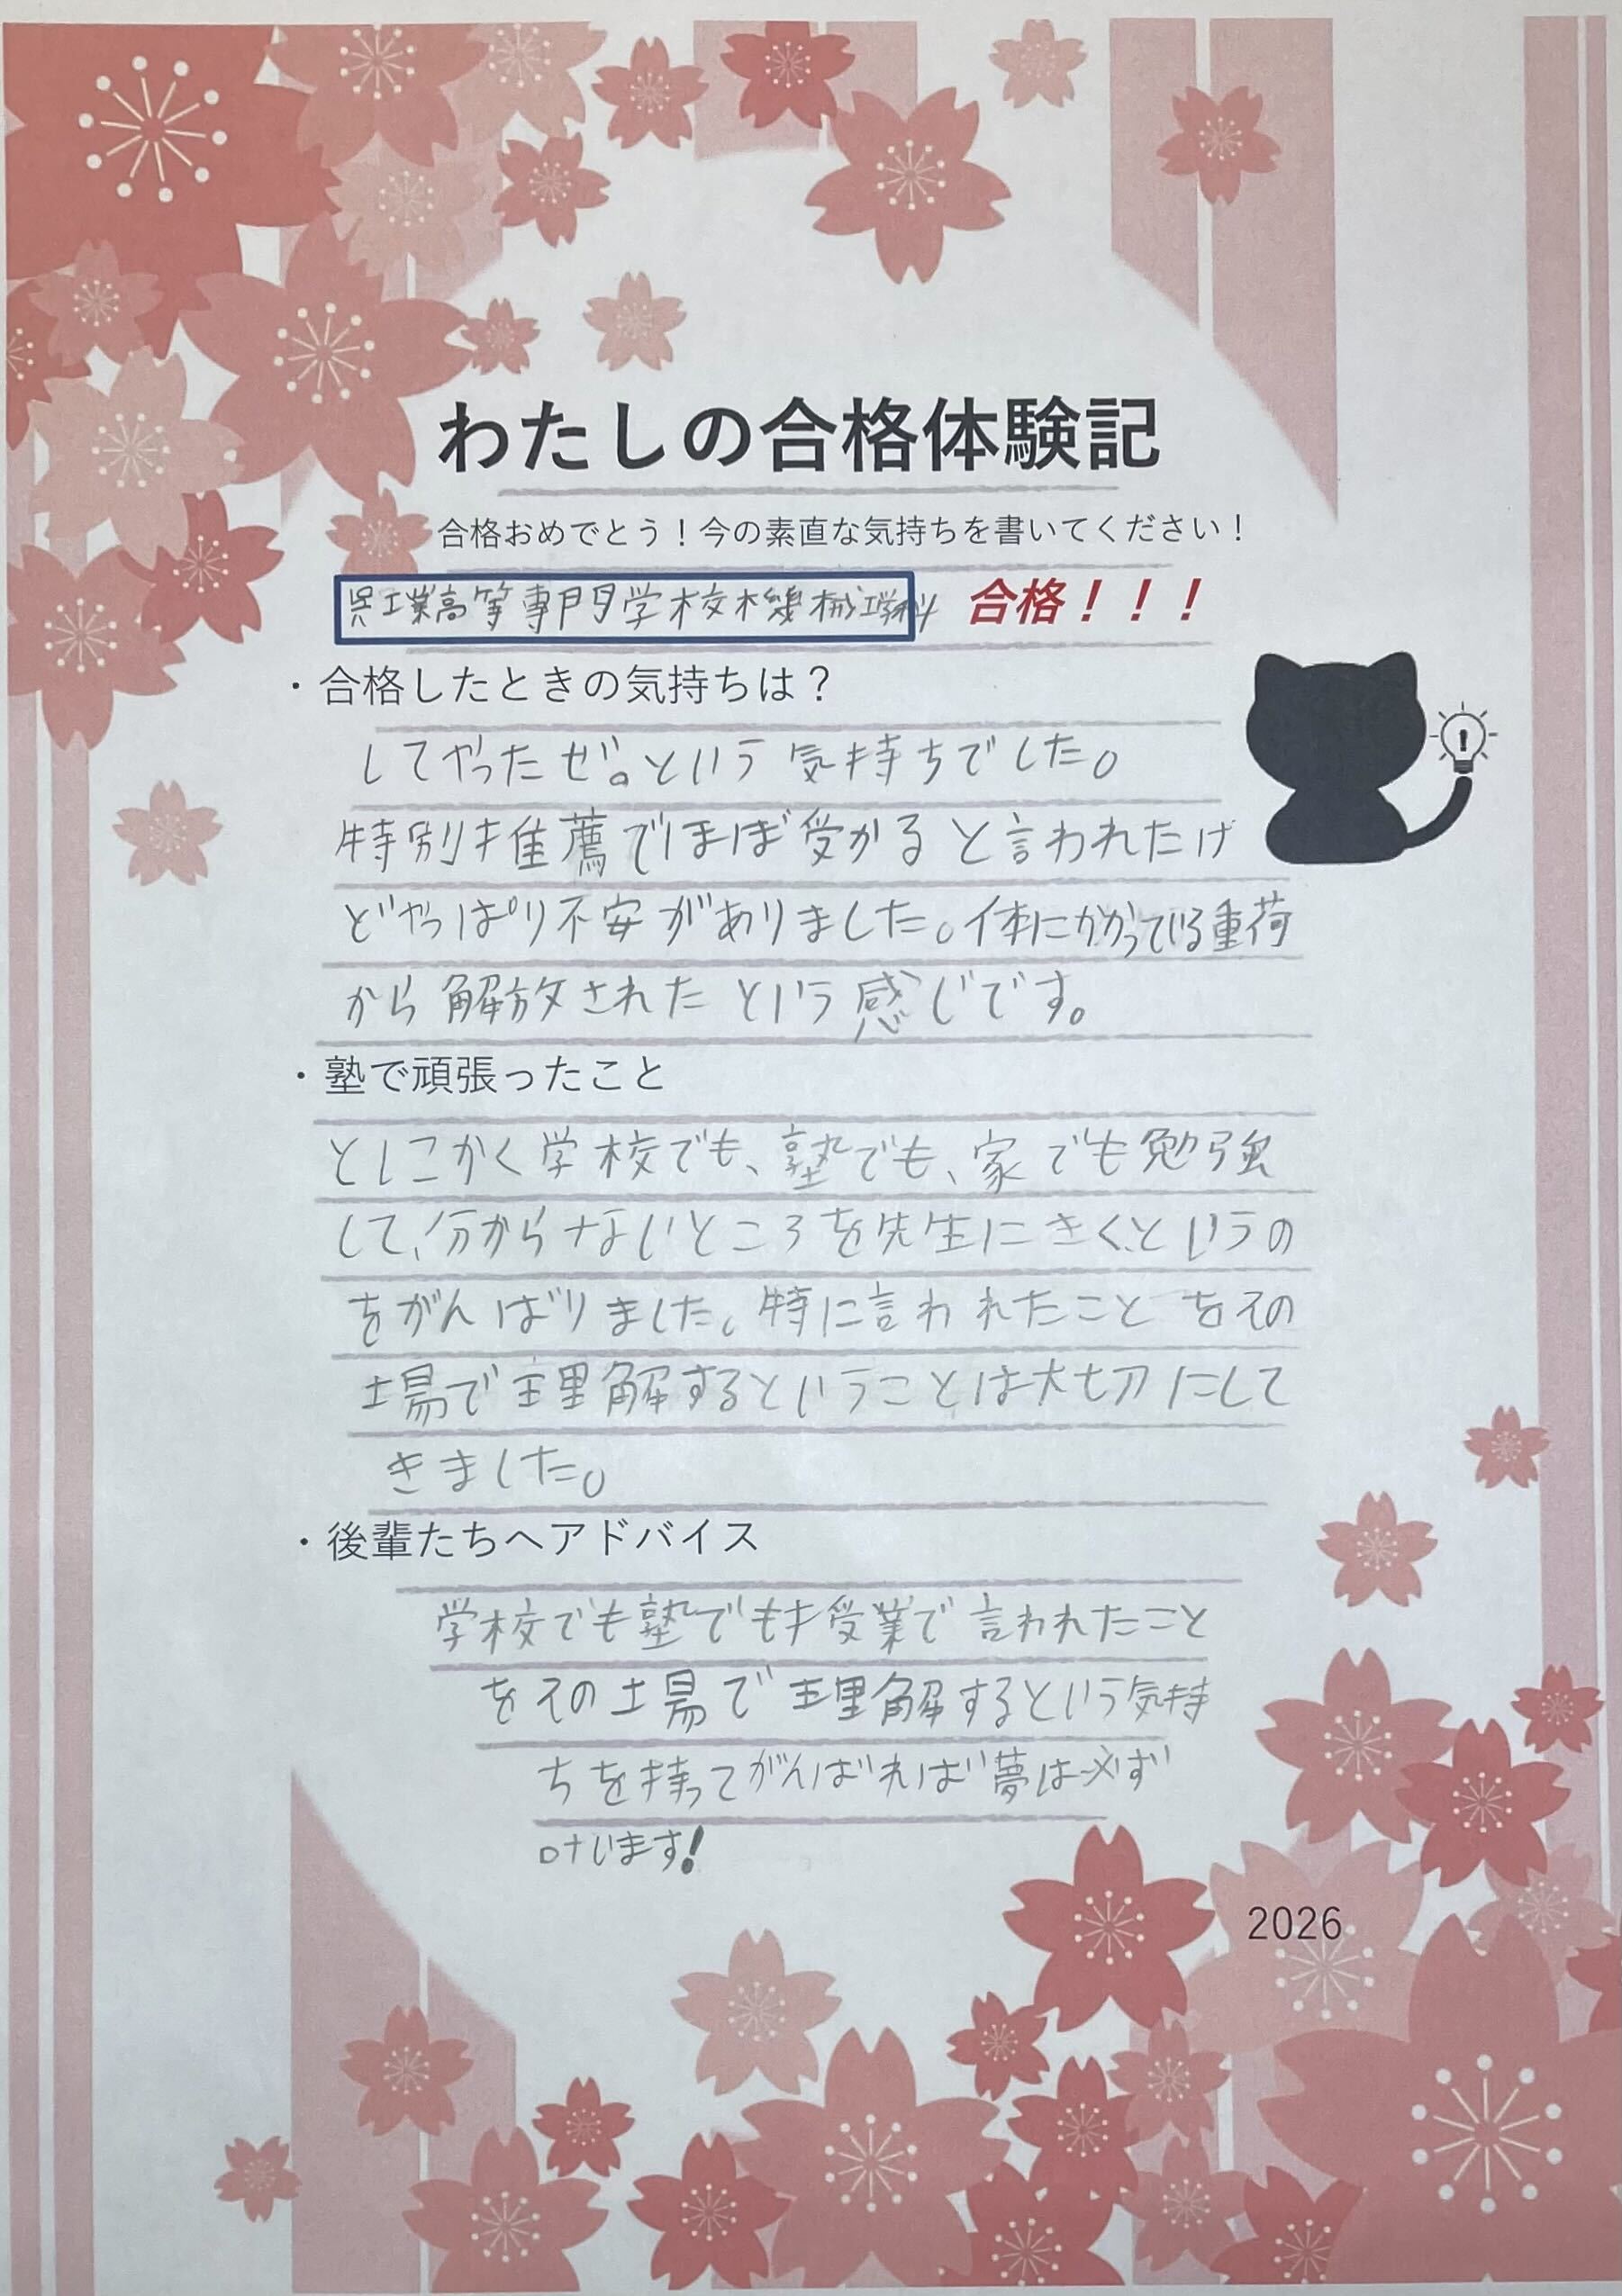 わたしの合格体験記
合格おめでとう！今の素直な気持ちを書いてください！
呉工業高等専門学校機械工学科 合格！！！
・合格したときの気持ちは？
してやったぜ。という気持ちでした。
特別推薦でほぼ受かると言われたけ
どやっぱり不安がありました。体にかかっている重荷
から解放されたという感じです。
・塾で頑張ったこと
とにかく学校でも、塾でも、家でも勉強
して、分からないところを先生にきくというの
をがんばりました。特に言われたことをその
場で理解するということは大切にして
きました。
・後輩たちへアドバイス
学校でも塾でも授業で言われたこと
をその場で理解するという気持
ちを持ってがんばれば夢は必ず
叶います！
2026